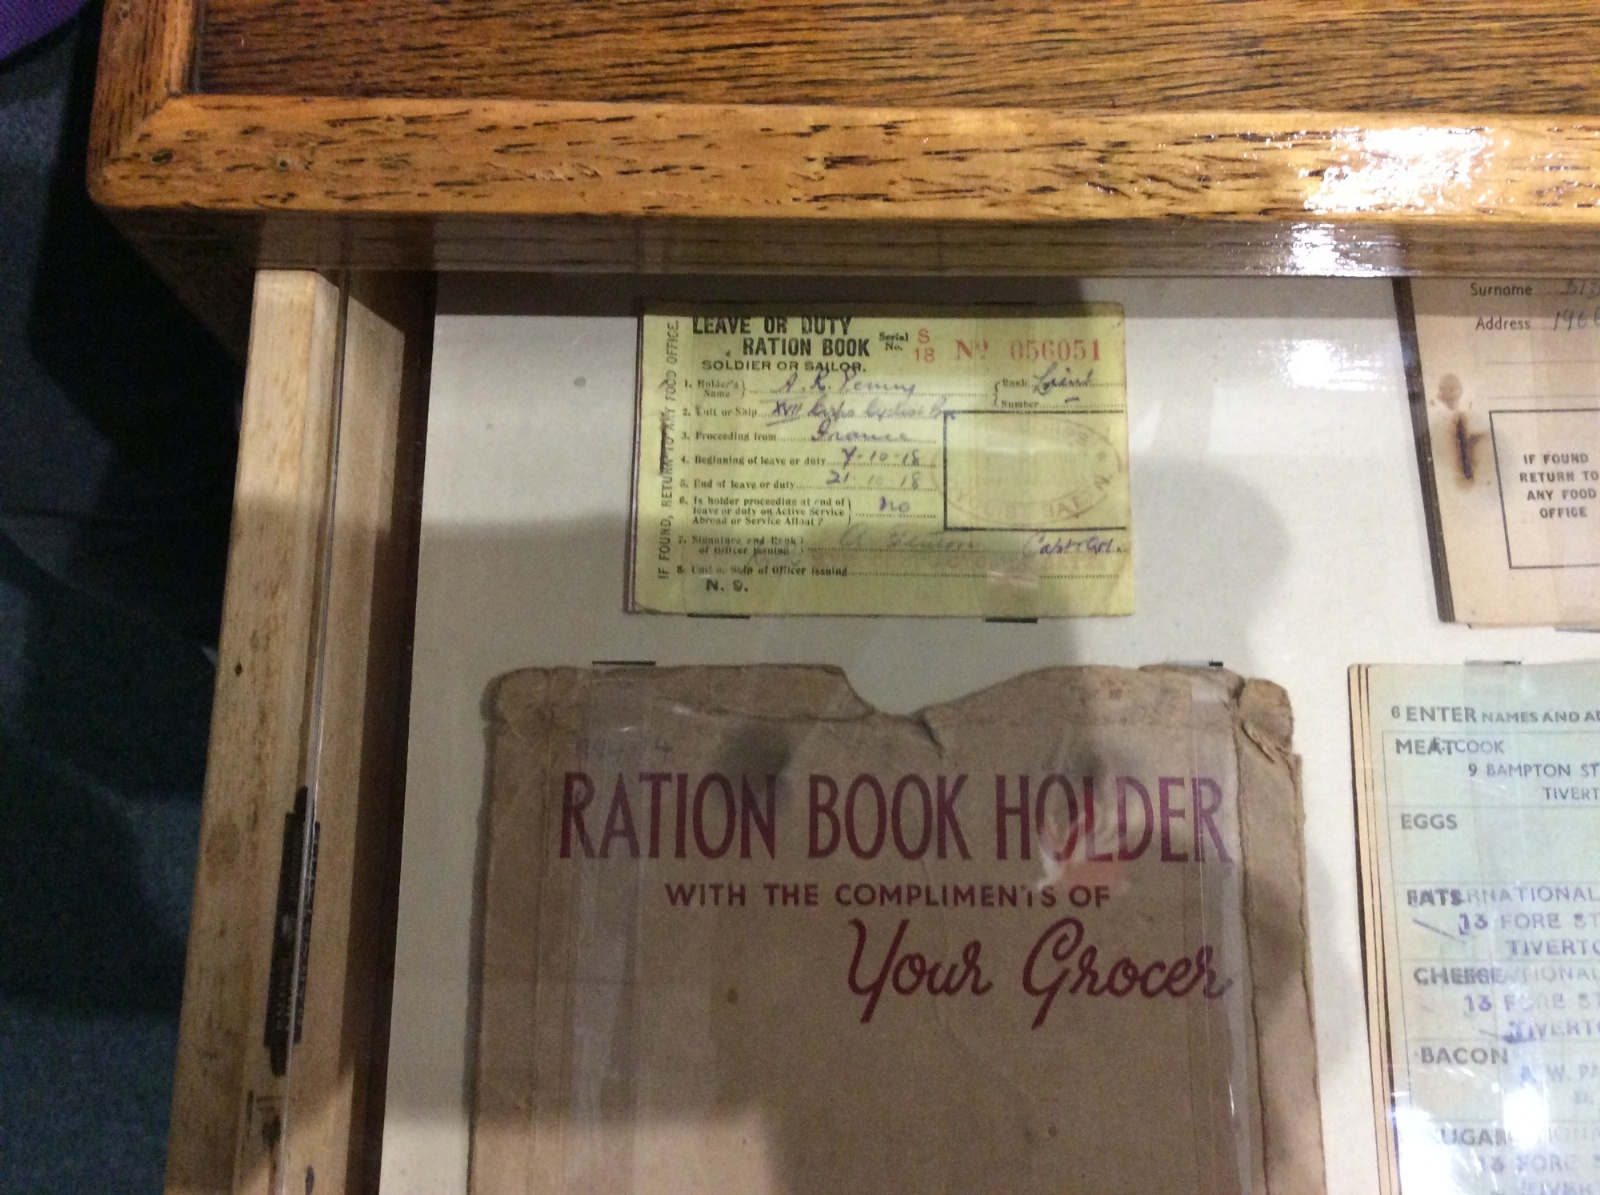 LEAVE OR DUTY
RATION BOOK
Serial No. S 18 Nº 056051
SOLDIER OR SAILOR.
1. Holder's Name A. R.
Rank
Number
2. Unit or Ship XVII Corps Cyclist Bn.
3. Proceeding from France
4. Beginning of leave or duty 7-10-18
5. End of leave or duty 21 10 18
6. Is holder proceeding at end of
leave or duty on Active Service
Abroad or Service Afloat? no
7. Signature and Rank
of Officer issuing Capt
8. Unit or Ship of Officer issuing
N. 9.
IF FOUND, RETURN TO ANY FOOD OFFICE.
CYCLIST BATN.
Surname
Address
IF FOUND
RETURN TO
ANY FOOD
OFFICE
RATION BOOK HOLDER
WITH THE COMPLIMENTS OF
Your Grocer
6 ENTER NAMES AND
MEAT COOK
9 BAMPTON ST
TIVERT
EGGS
FATS RNATIONAL
13 FORE ST
TIVERTO
CHEESE ATIONAL
13 FORE ST
TIVERTO
BACON
W. PA
SUGAR
13 FORE